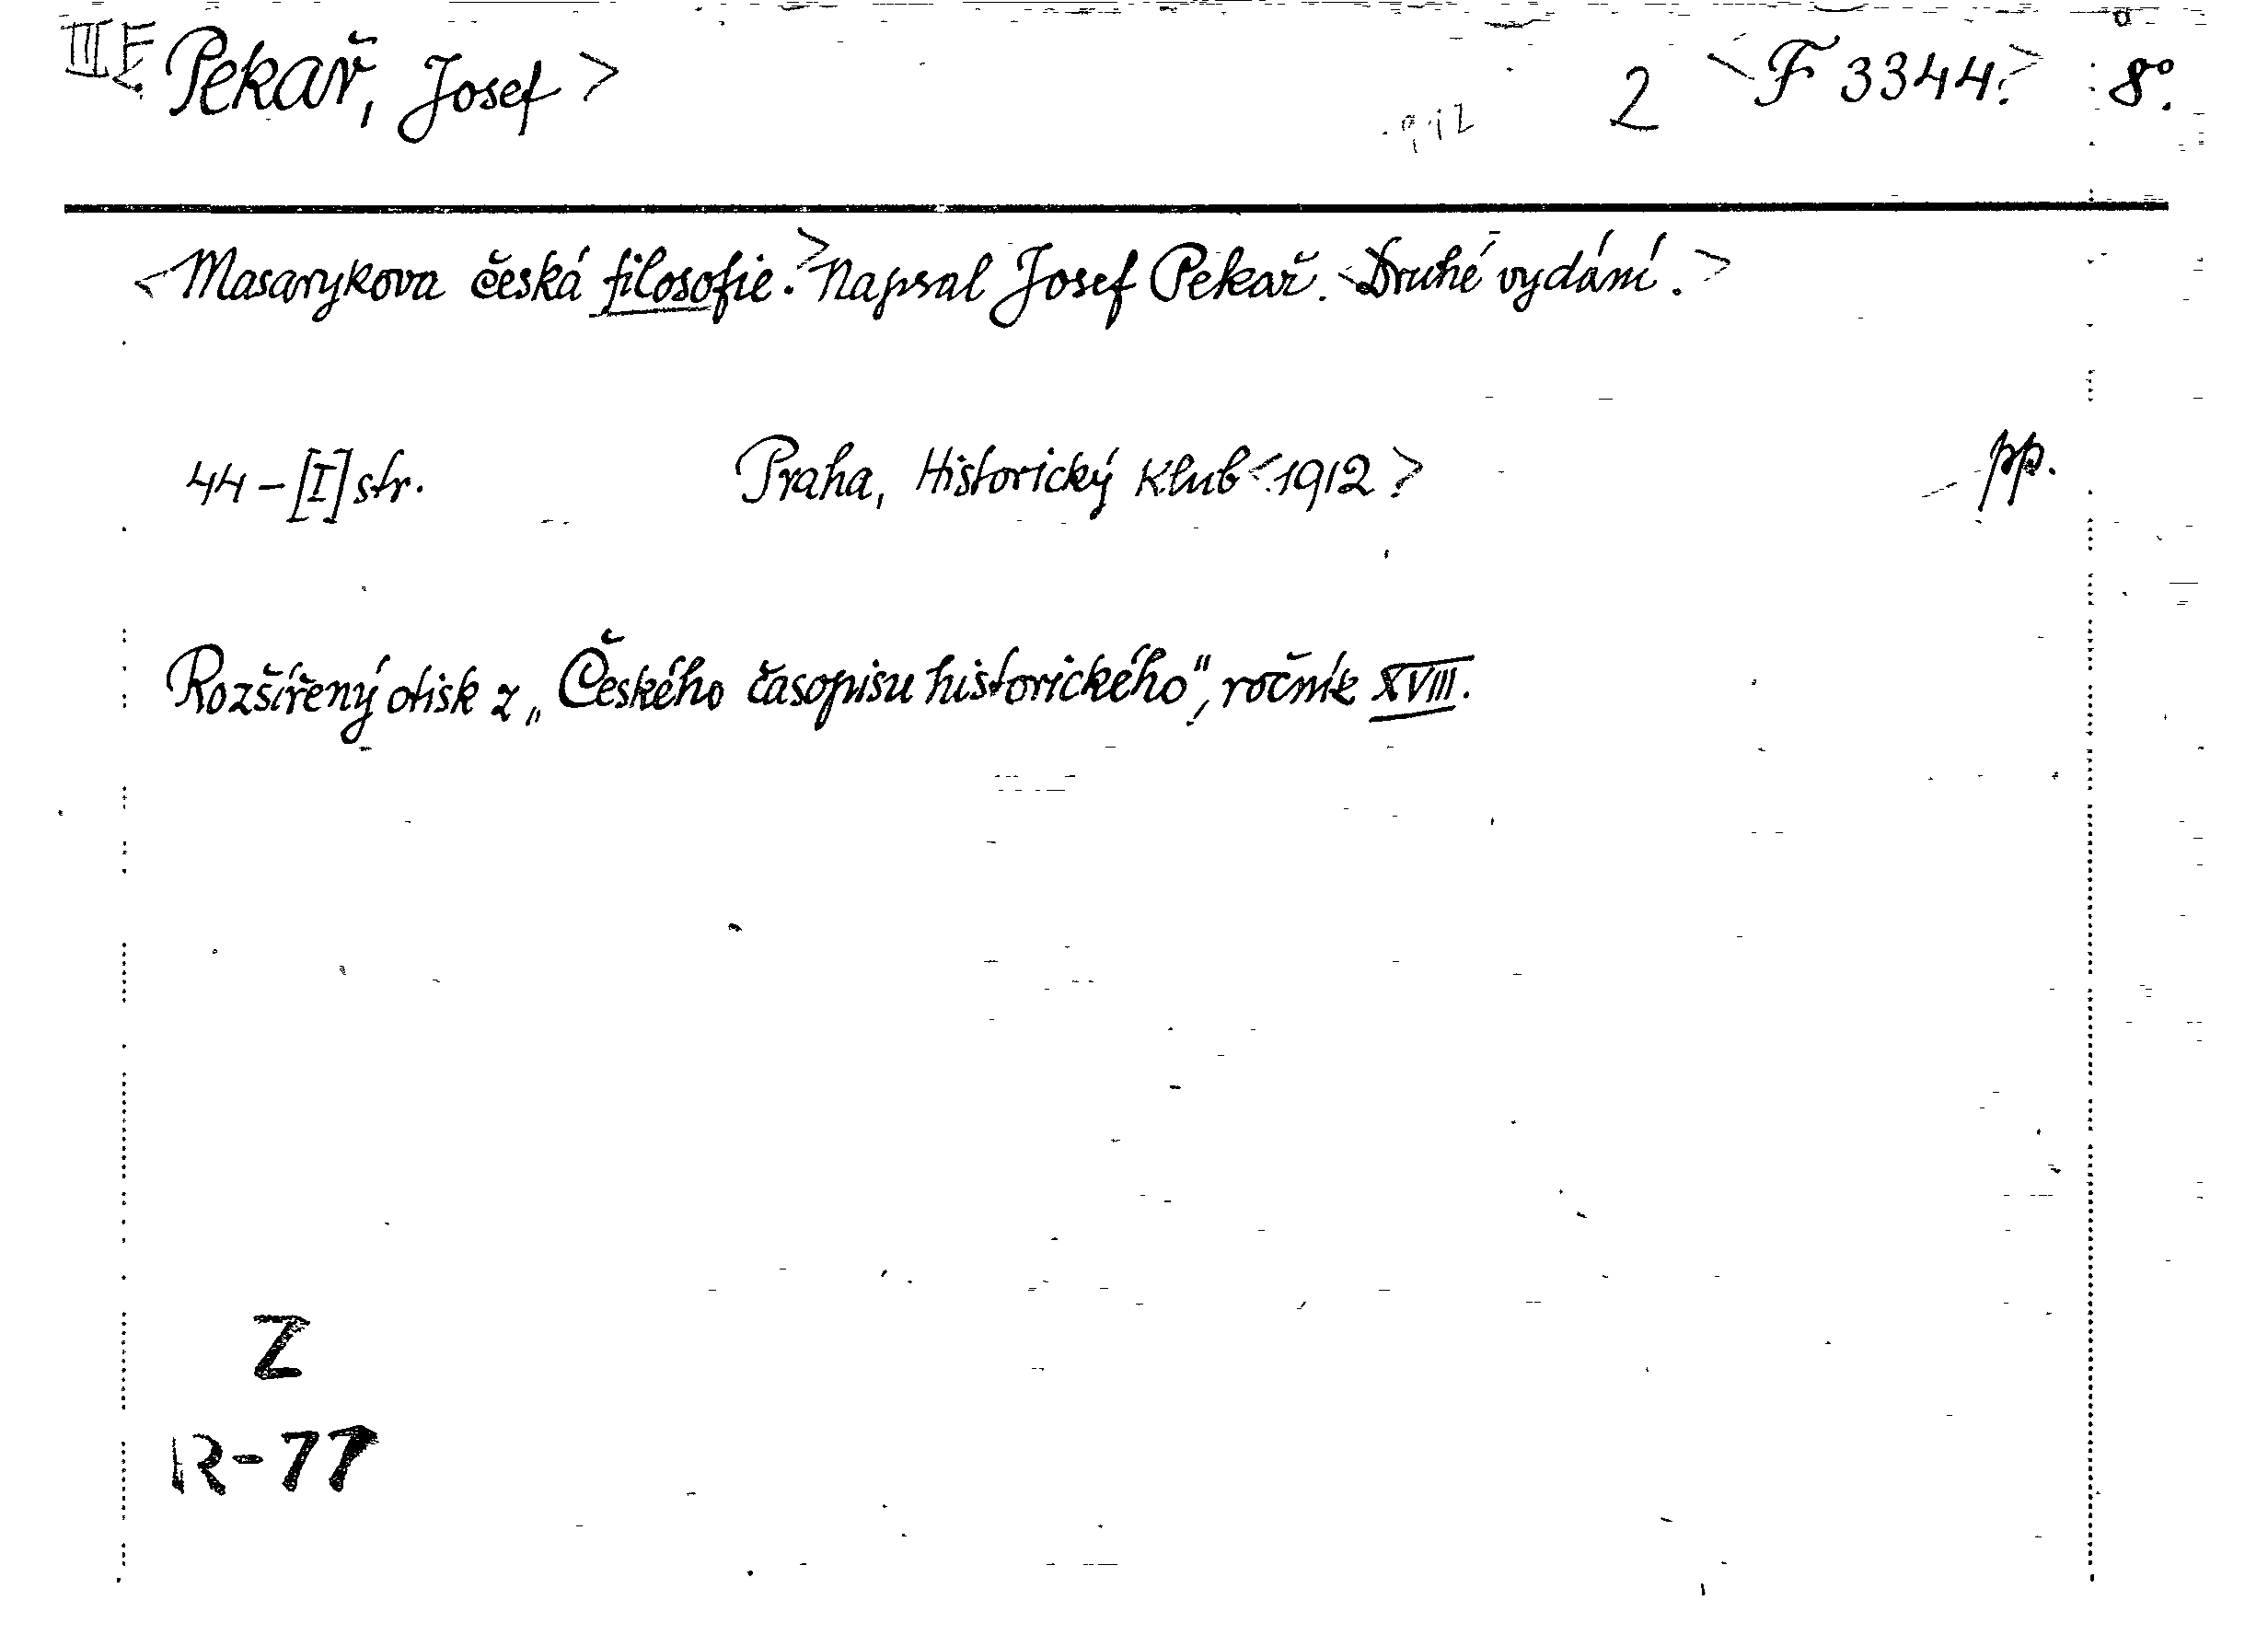 III F. Pekař, Josef > 1912 2 <F 3344.> 8°.
<Masarykova česká filosofie.> Napsal Josef Pekař. <Druhé vydání.>
44 – [I] str. Praha, Historický Klub <1912> pp.
Rozšířený otisk z „Českého časopisu historického“, ročník XVIII.
Z
R-77